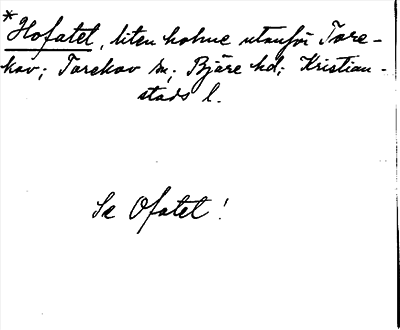 *Hofatet, liten holme utanför Tore-
kov; Torekov sn; Bjäre hd; Kristian-
stads l.
Se Ofatet!